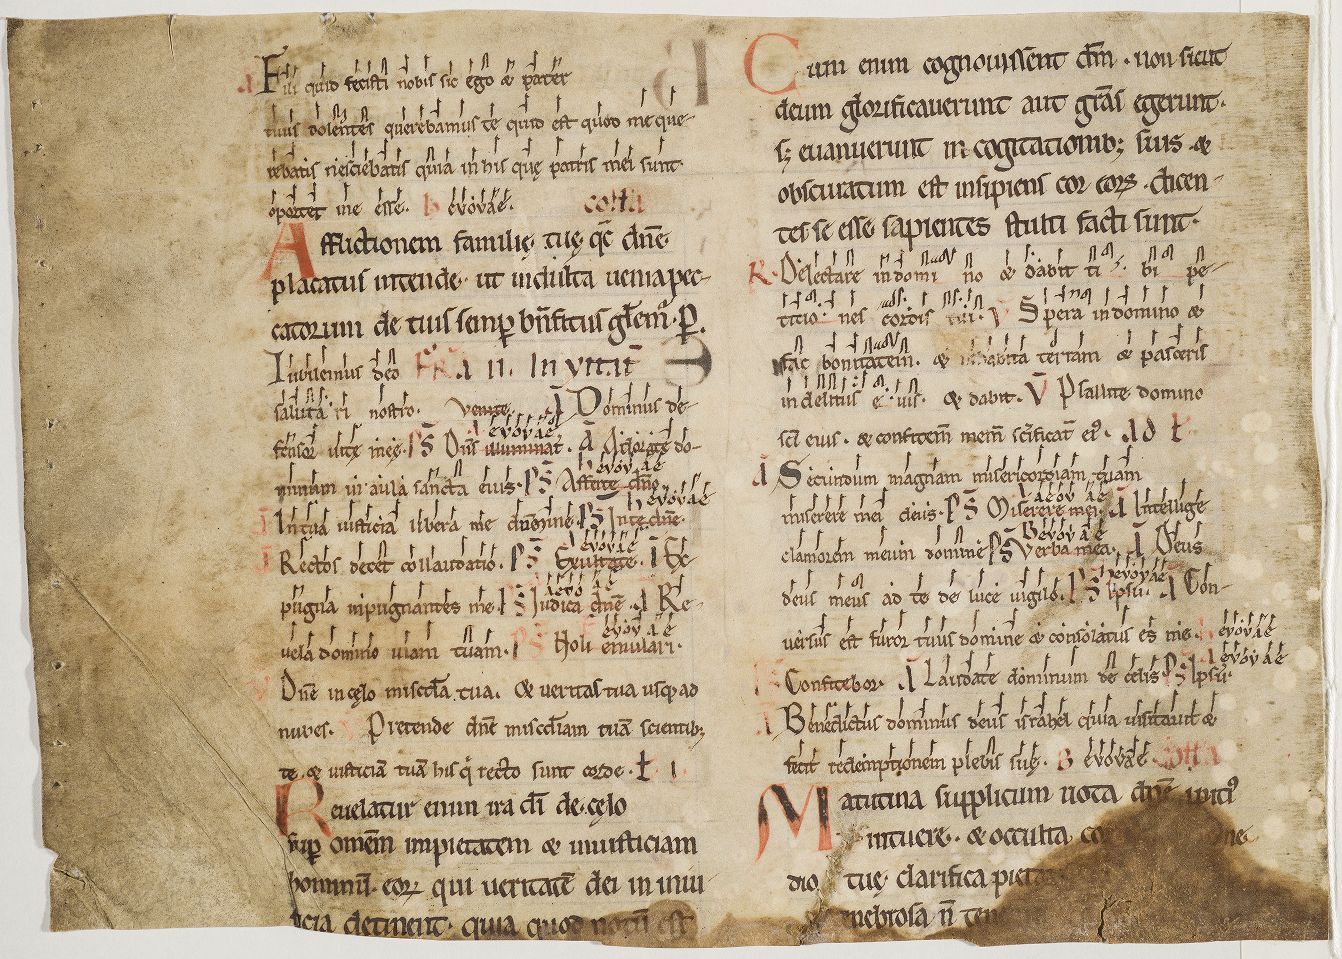 Fili quid fecisti nobis sic ego & pater
tuus dolentes querebamus te quid est quod me que-
rebatis nesciebatis quia in his quę patris mei sunt
oportet me esse. evovae. coll̄a
Afflictionem familię tuę q̄s dn̄e
placatus intende. ut indulta uenia pec-
catorum de tuis semper
Iubilemus deo II. Inuitat̄
salutari nostro. Venite. A Dominus de-
evovae
fensor uitę męę. PS Dn̄s illuminat̄. A Adorate do-
evovae
minum in aula sancta eius. PS Afferte dn̄o
evovae
In tua iusticia libera me domine. PS In te dn̄e.
evovae
Rectos decet collaudatio. PS Exultate. A Ex-
pugna inpugnantes me. PS Iudica dn̄e. A Re-
evovae
uela domino uiam tuam. PS Noli emulari.
Dn̄e in cęlo tua. & ueritas tua usq; ad
nubes. Pretende dn̄e tuā scientib;
te. & iusticiā tuā his q̇ recto sunt corde. I.
Reuelatur enim ira dī de cęlo
sup omēm impietatem & iniusticiam
hominū. eorꝝ qui ueritatē dei in iniu-
ticia detinent. quia quod notū est
Cum enim cognouissent dm̄. non sicut
deum glorificauerunt aut grās egerunt.
s; euanuerunt in cogitationib; suis. &
obscuratum est insipiens cor eorꝝ. dicen-
tes se esse sapientes stulti facti sunt.
R Delectare in domino & dabit tibi pe-
titiones cordis tui. V Spera in domino &
fac bonitatem. & inhabita terram & pasceris
in deliciis eius. & dabit. V Psallite domino
scī eius. & Ad L
A Secundum magnam misericordiam tuam
evovae
miserere mei deus. PS Miserere mei. A Intellige
evovae
clamorem meum domine. PS Verba mea. A Deus
evovae
deus meus ad te de luce uigilo. PS Ipsū. A Con-
uersus est furor tuus domine & consolatus es me. evovae
evovae
Confitebor. A Laudate dominum de celis. PS Ipsū.
A Benedictus dominus deus israhel quia uisitauit &
fecit redemptionem plebis suę. B evovae coll̄a
Matutina supplicum uota dn̄e
intuere. & occulta
dio tuę clarifica
tenebrosa n̄